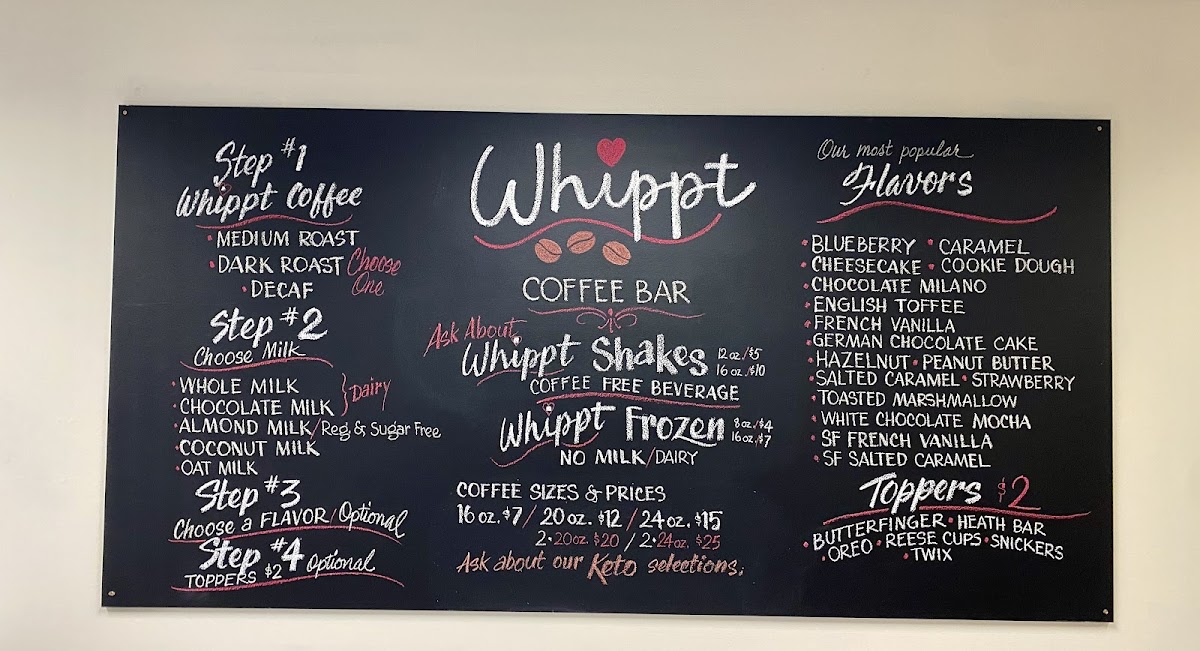 Step #1
Whippt Coffee
• MEDIUM ROAST
• DARK ROAST Choose One
• DECAF
Step #2
Choose Milk
• WHOLE MILK
• CHOCOLATE MILK } Dairy
• ALMOND MILK / Reg & Sugar Free
• COCONUT MILK
• OAT MILK
Step #3
Choose a FLAVOR / Optional
Step #4 Optional
TOPPERS $2
Whippt
COFFEE BAR
Ask About
Whippt Shakes 12 oz./$5
16 oz./$10
COFFEE FREE BEVERAGE
Whippt Frozen 8 oz./$4
16 oz./$7
NO MILK/DAIRY
COFFEE SIZES & PRICES
16 oz. $7 / 20 oz. $12 / 24 oz. $15
2 • 20 oz. $20 / 2 • 24 oz. $25
Ask about our Keto selections.
Our most popular
Flavors
• BLUEBERRY • CARAMEL
• CHEESECAKE • COOKIE DOUGH
• CHOCOLATE MILANO
• ENGLISH TOFFEE
• FRENCH VANILLA
• GERMAN CHOCOLATE CAKE
• HAZELNUT • PEANUT BUTTER
• SALTED CARAMEL • STRAWBERRY
• TOASTED MARSHMALLOW
• WHITE CHOCOLATE MOCHA
• SF FRENCH VANILLA
• SF SALTED CARAMEL
Toppers $2
• BUTTERFINGER • HEATH BAR
• OREO • REESE CUPS • SNICKERS
• TWIX